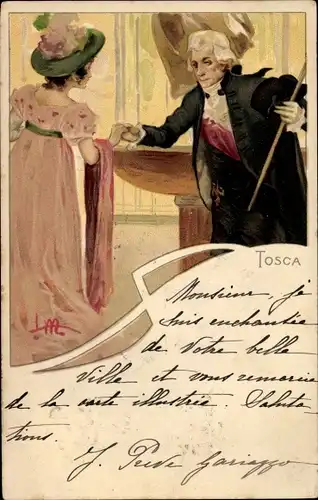 TOSCA
LMZ
Monsieur, je
suis enchantée
de Votre belle
Ville et vous remercie
de la carte illustrée. Saluta
tions.
J. Gariazzo